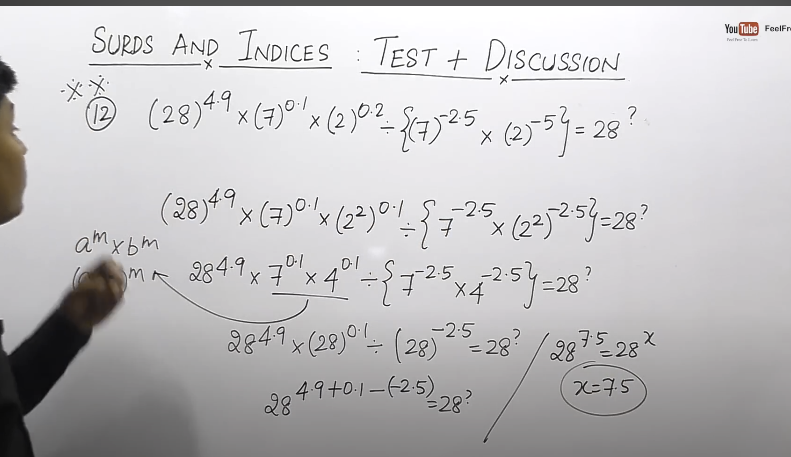 YouTube FeelFre
Feel Free To Learn
SURDS AND INDICES : TEST + DISCUSSION
(12) (28)^4.9 × (7)^0.1 × (2)^0.2 ÷ {(7)^-2.5 × (2)^-5} = 28^?
(28)^4.9 × (7)^0.1 × (2^2)^0.1 ÷ {7^-2.5 × (2^2)^-2.5} = 28^?
a^m × b^m
)^m
28^4.9 × 7^0.1 × 4^0.1 ÷ {7^-2.5 × 4^-2.5} = 28^?
28^4.9 × (28)^0.1 ÷ (28)^-2.5 = 28^?
28^4.9+0.1-(-2.5) = 28^?
28^7.5 = 28^x
x = 7.5